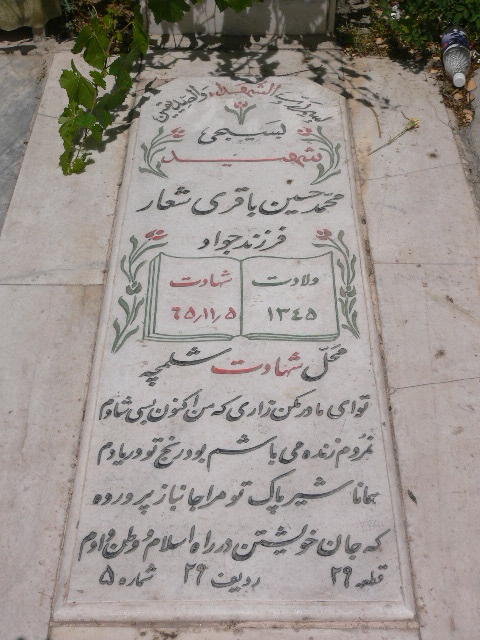 الشهداء والصدیقین
بسیجی
شهید
محمدحسین باقری شعار
فرزند جواد
ولادت شهادت
۱۳۴۵ ۶۵/۱۱/۵
محلّ شهادت شلمچه
توای مادر مکن زاری که من اکنون بسی شادم
نمردم زنده می باشم بود رنج تو در یادم
همانا شیر پاک تو مرا جانباز پرورده
که جان خویشتن در راه اسلام و وطن دادم
قطعه ۲۹ ردیف ۲۹ شماره ۵